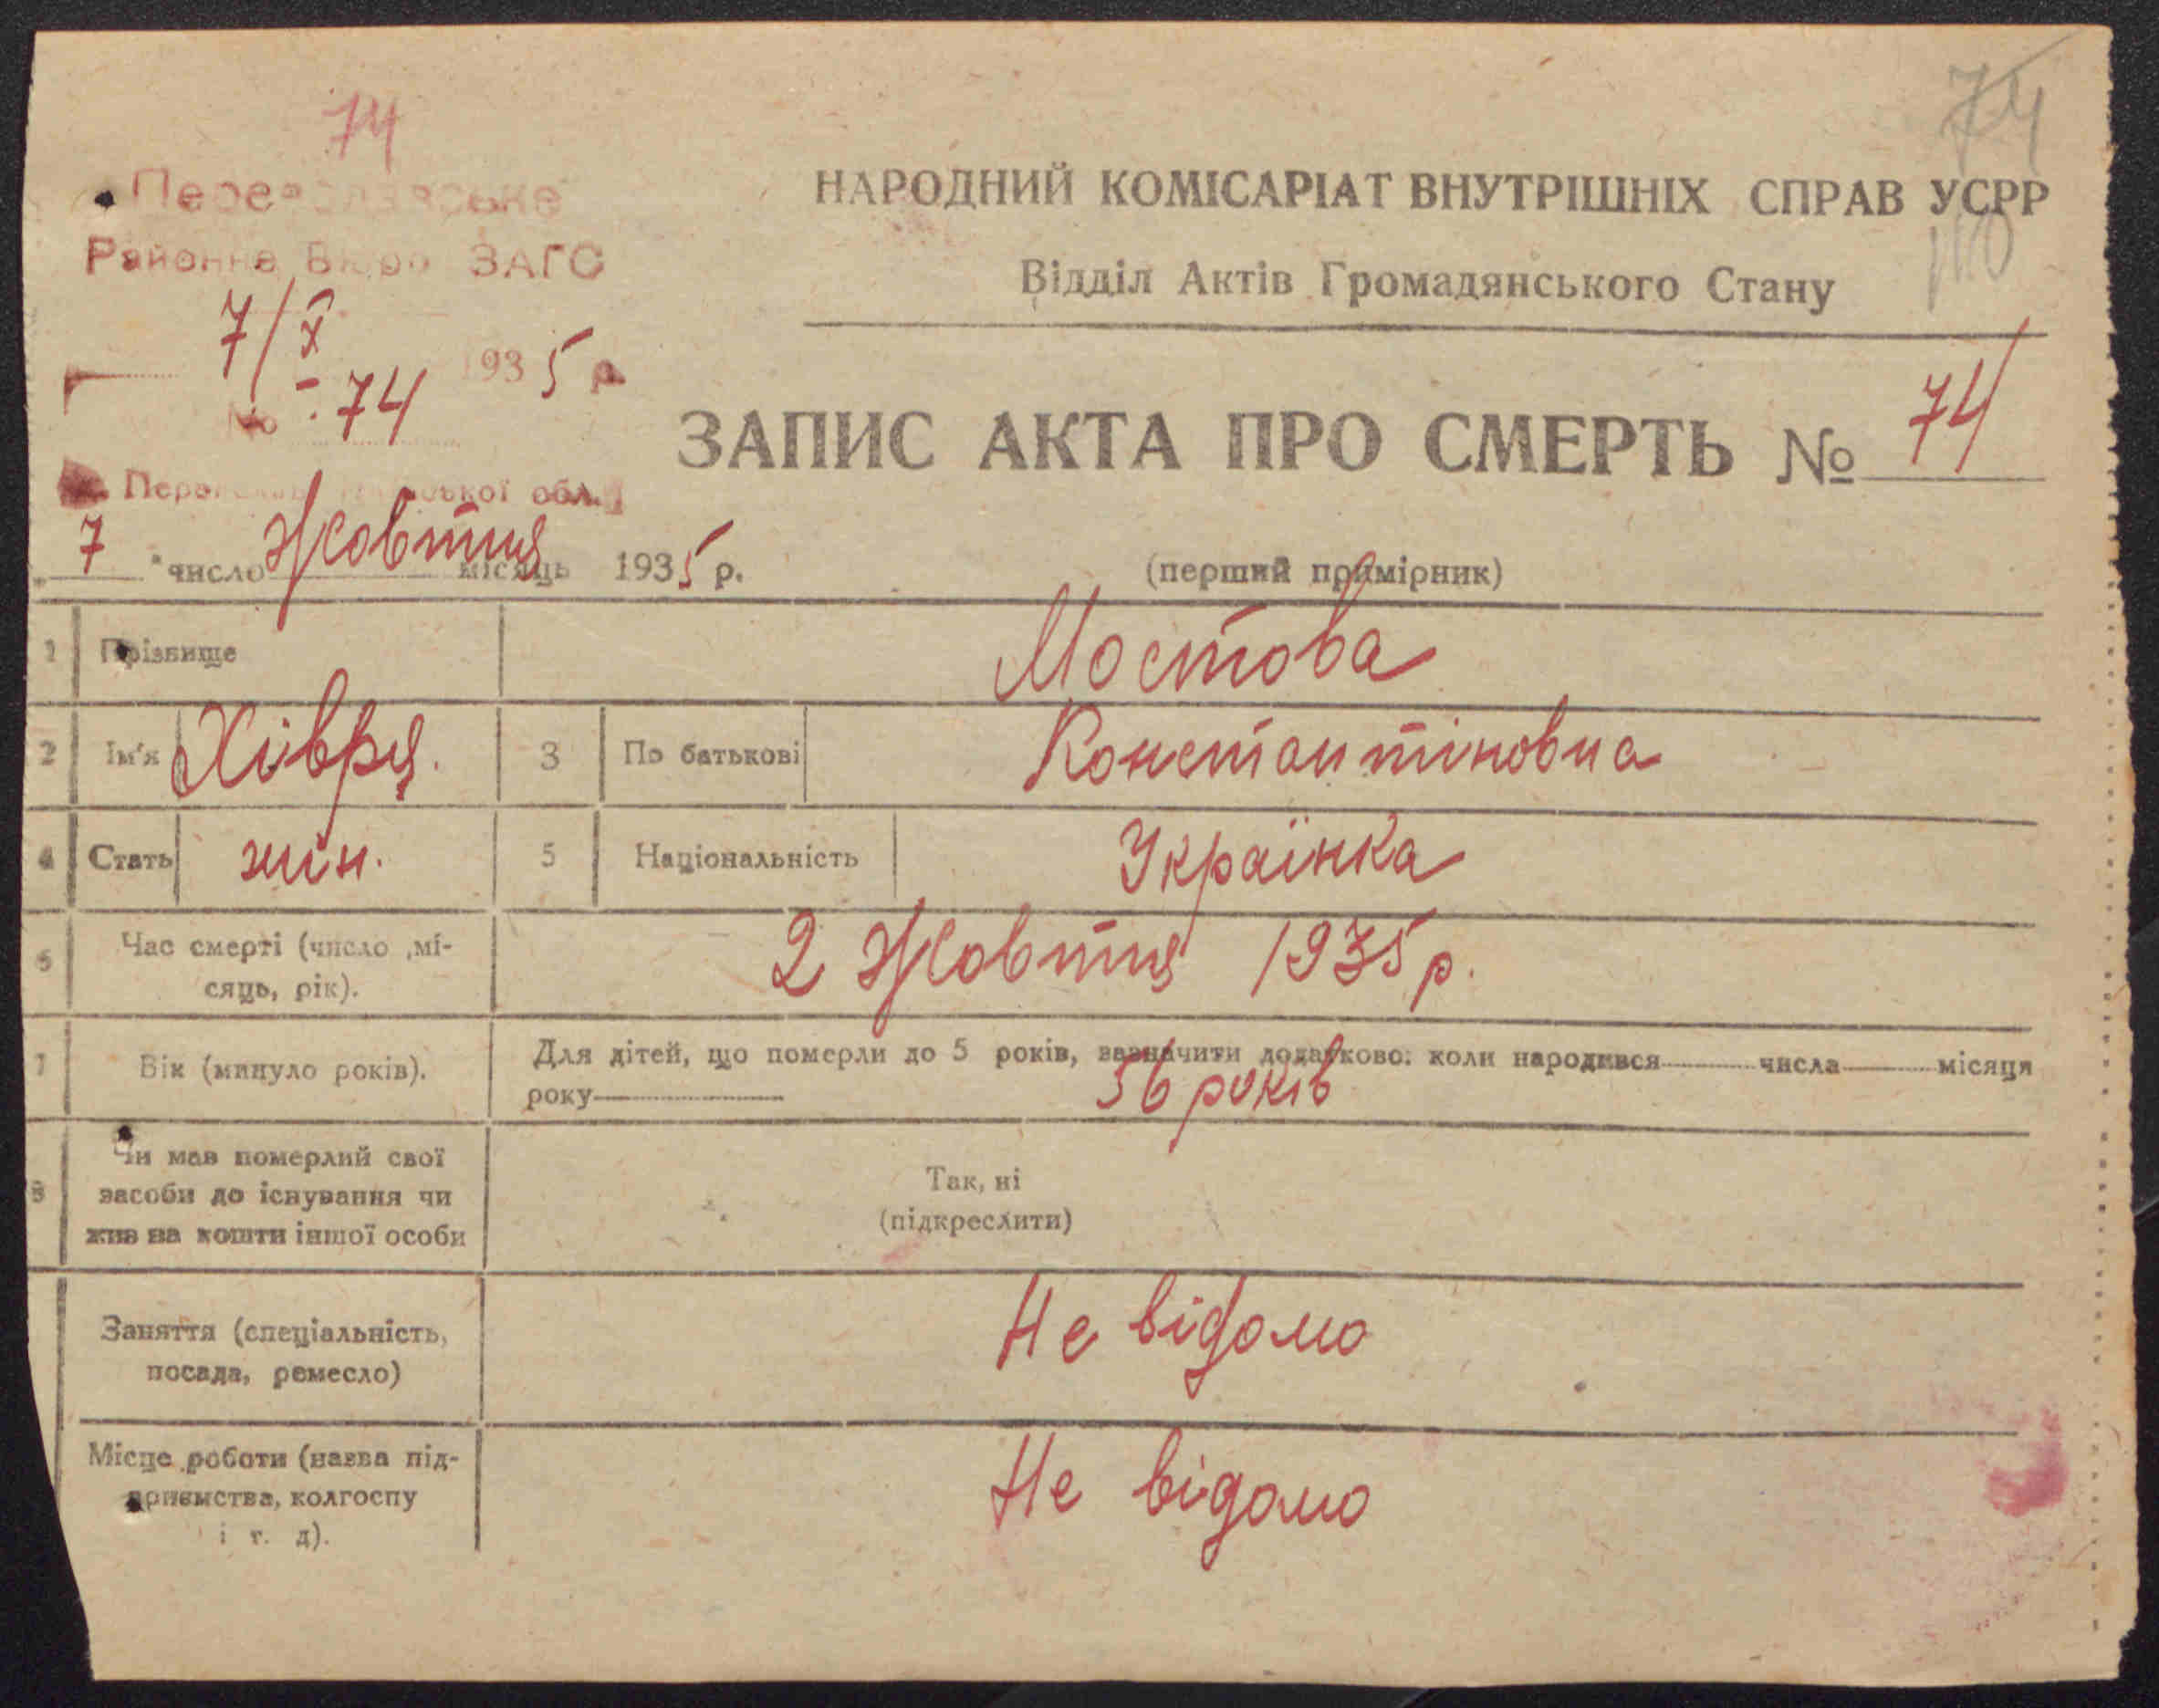 74
74
Переяславське
Районне Бюро ЗАГС
7/X 1935 р.
№ 74
Переяслав, Київської обл.
НАРОДНИЙ КОМІСАРІАТ ВНУТРІШНІХ СПРАВ УСРР
110
Відділ Актів Громадянського Стану
ЗАПИС АКТА ПРО СМЕРТЬ № 74
„7" число Жовтня місяць 1935 р.
(перший примірник)
1 Прізвище Мостова
2 Ім'я Хівря. 3 По батькові Константіновна
4 Стать жін. 5 Національність Українка
6 Час смерті (число ,мі-
сяць, рік).
2 Жовтня 1935 р.
7 Вік (минуло років).
Для дітей, що померли до 5 років, зазначити додатково: коли народився числа місяця
року 56 років
8 Чи мав померлий свої
засоби до існування чи
жив на кошти іншої особи
Так, ні
(підкреслити)
Заняття (спеціальність,
посада, ремесло)
Не відомо
Місце роботи (назва під-
приємства, колгоспу
і т. д).
Не відомо